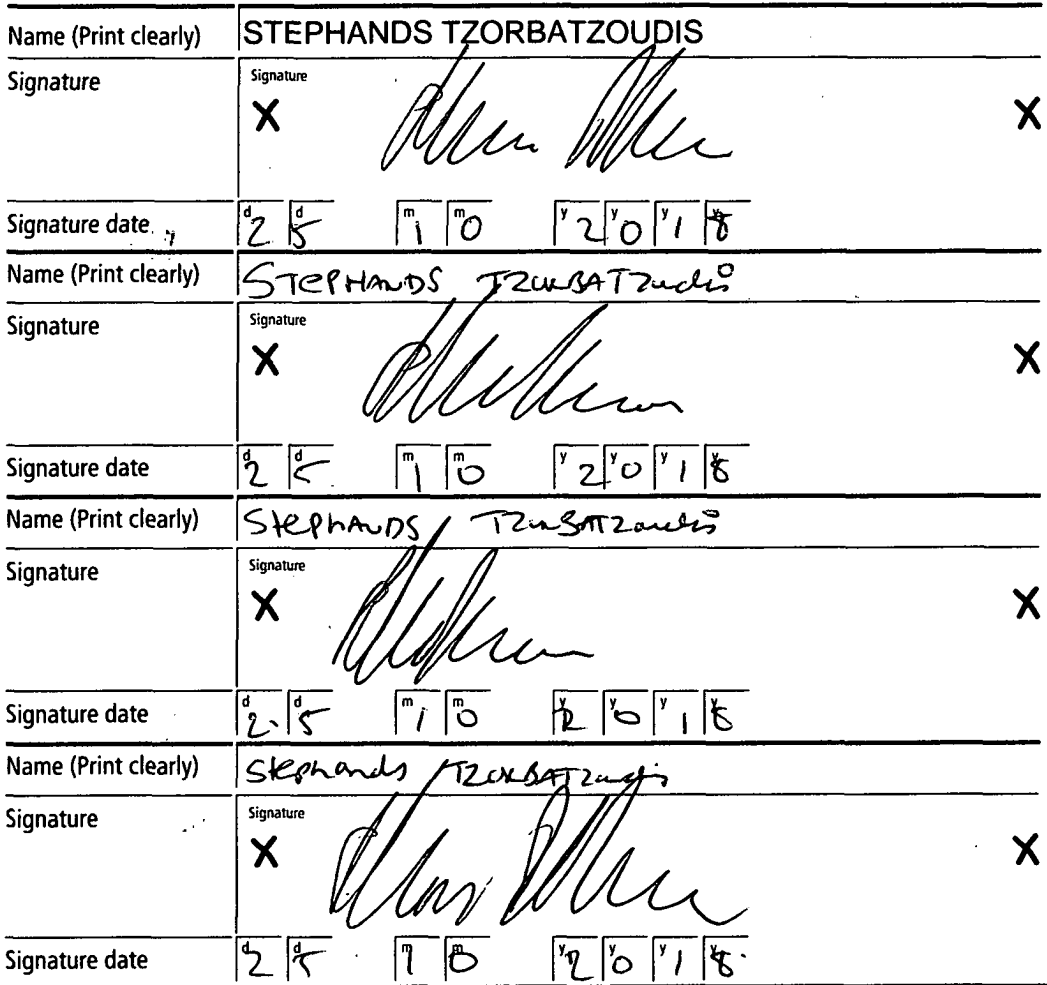 Name (Print clearly) STEPHANDS TZORBATZOUDIS
Signature Signature
X X
Signature date d2 d5 m1 m0 y2 y0 y1 y8
Name (Print clearly) STEPHANDS TZORBATZoudis
Signature Signature
X X
Signature date d2 d5 m1 m0 y2 y0 y1 y8
Name (Print clearly) StephANDS TZORBATZoudis
Signature Signature
X X
Signature date d2 d5 m1 m0 y2 y0 y1 y8
Name (Print clearly) Stephands TZORBATZoudis
Signature Signature
X X
Signature date d2 d5 m1 m0 y2 y0 y1 y8